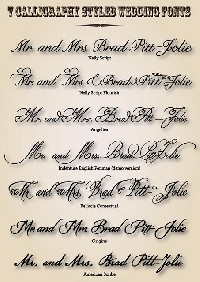 7 CALLIGRAPHY STYLED WEDDING FONTS
Mr. and Mrs. Brad Pitt-Jolie
Nelly Script
Mr. and Mrs. Brad Pitt Jolie
Nelly Script Flourish
Mr. and Mrs. Brad Pitt-Jolie
Angelina
Mr. and Mrs. Brad Pitt-Jolie
Indenture English Penman (demoversion)
Mr. and Mrs. Brad Pitt Jolie
Mr. and Mrs. Brad Pitt-Jolie
Origins
Mr. and Mrs. Brad Pitt-Jolie
American Scribe